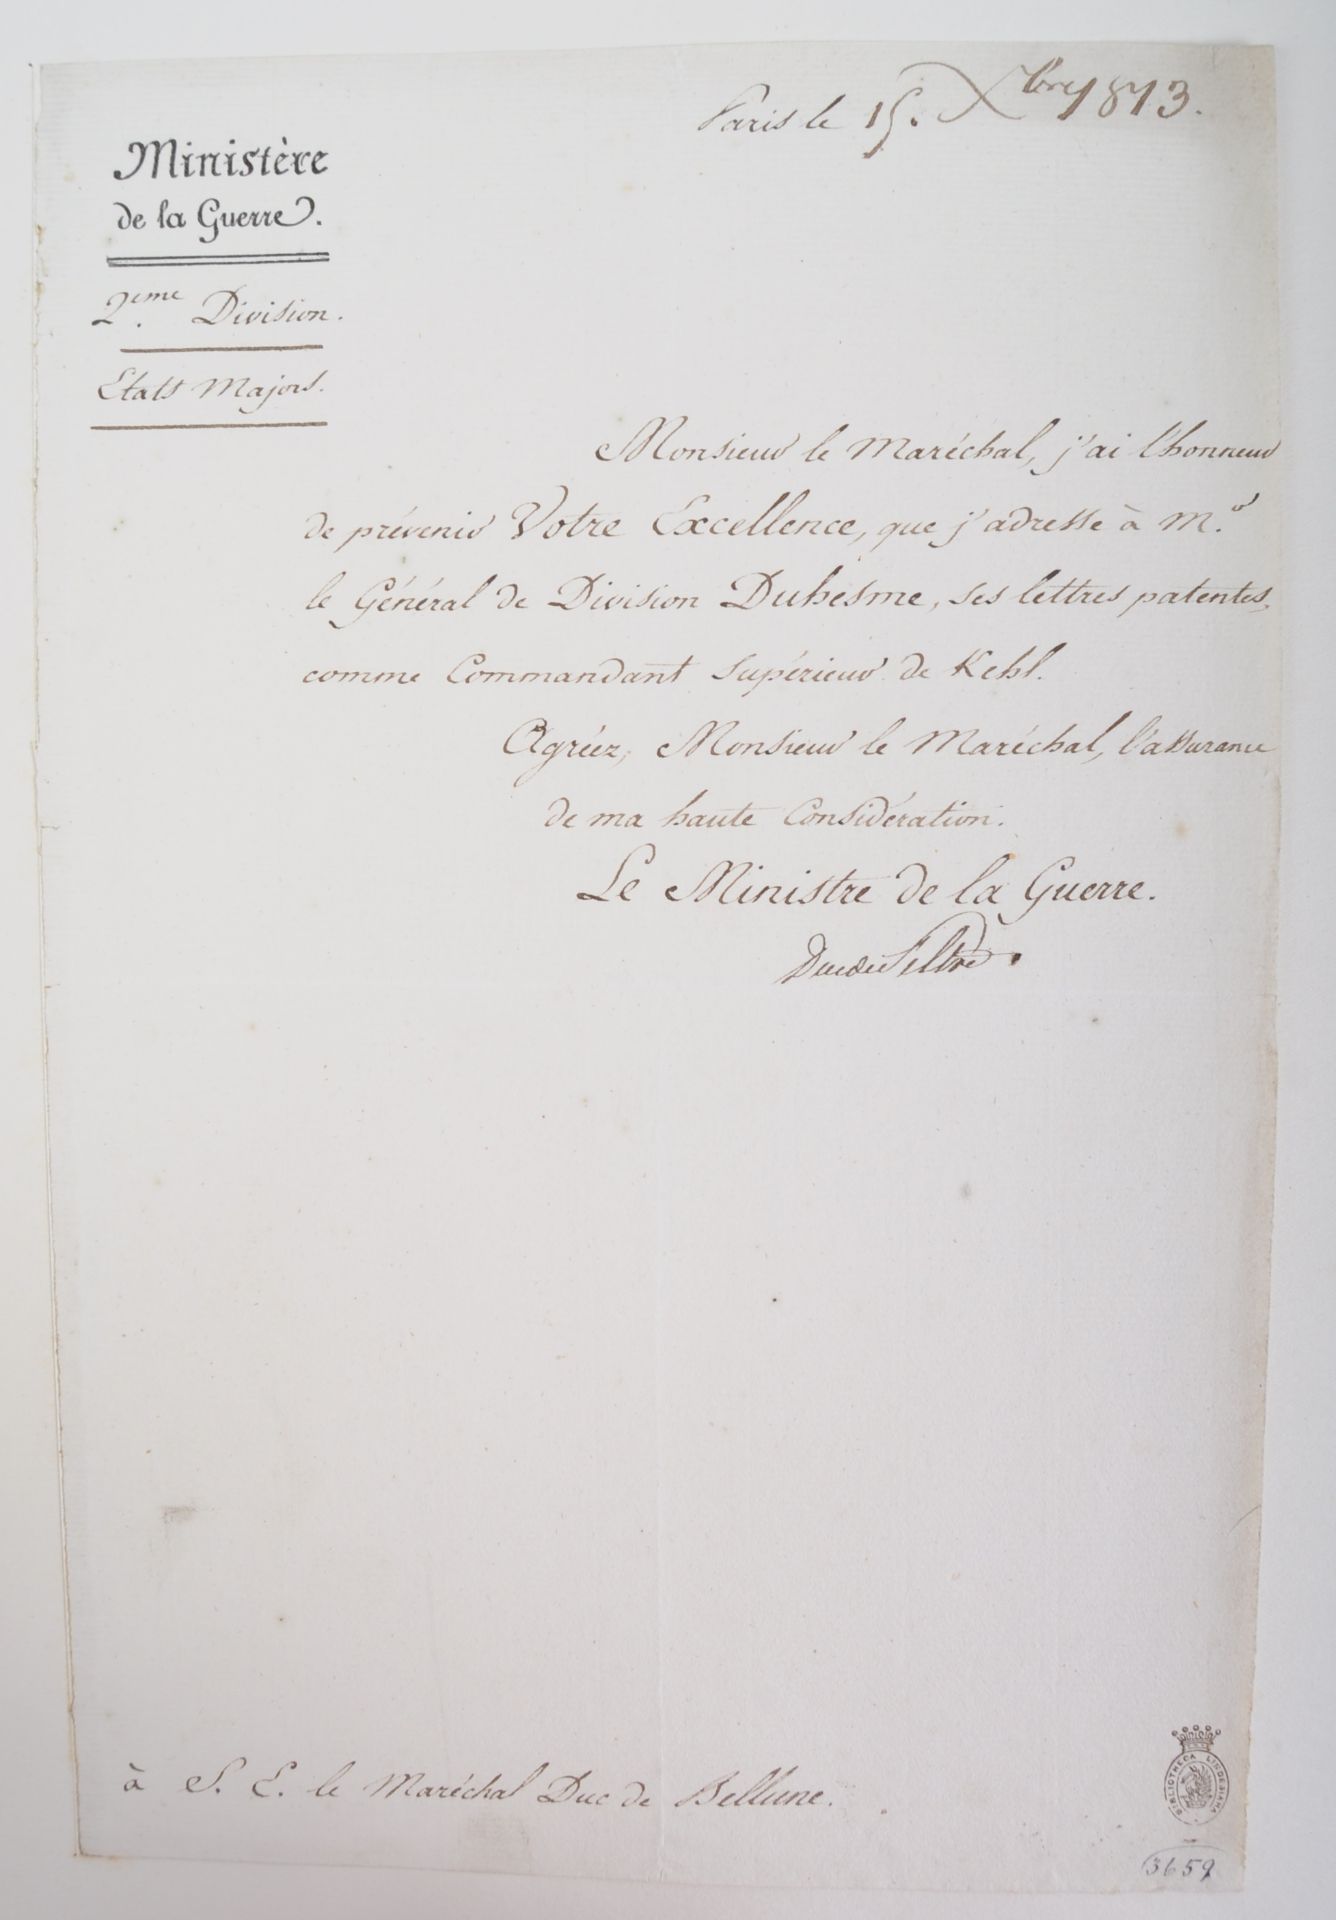 Paris le 15. Xbre 1813.
Ministère
de la Guerre.
2.eme Division.
Etats Majors.
Monsieur le Maréchal, j'ai l'honneur
de prévenir Votre Excellence, que j'adresse à M.r
le Général de Division Duhesme, ses lettres patentes,
comme Commandant Supérieur de Kehl.
Agréez, Monsieur le Maréchal, l'assurance
de ma haute Considération.
Le Ministre de la Guerre.
Duc de Feltre.
à S. E. le Maréchal Duc de Bellune.
BIBLIOTHECA LINDESIANA
3659